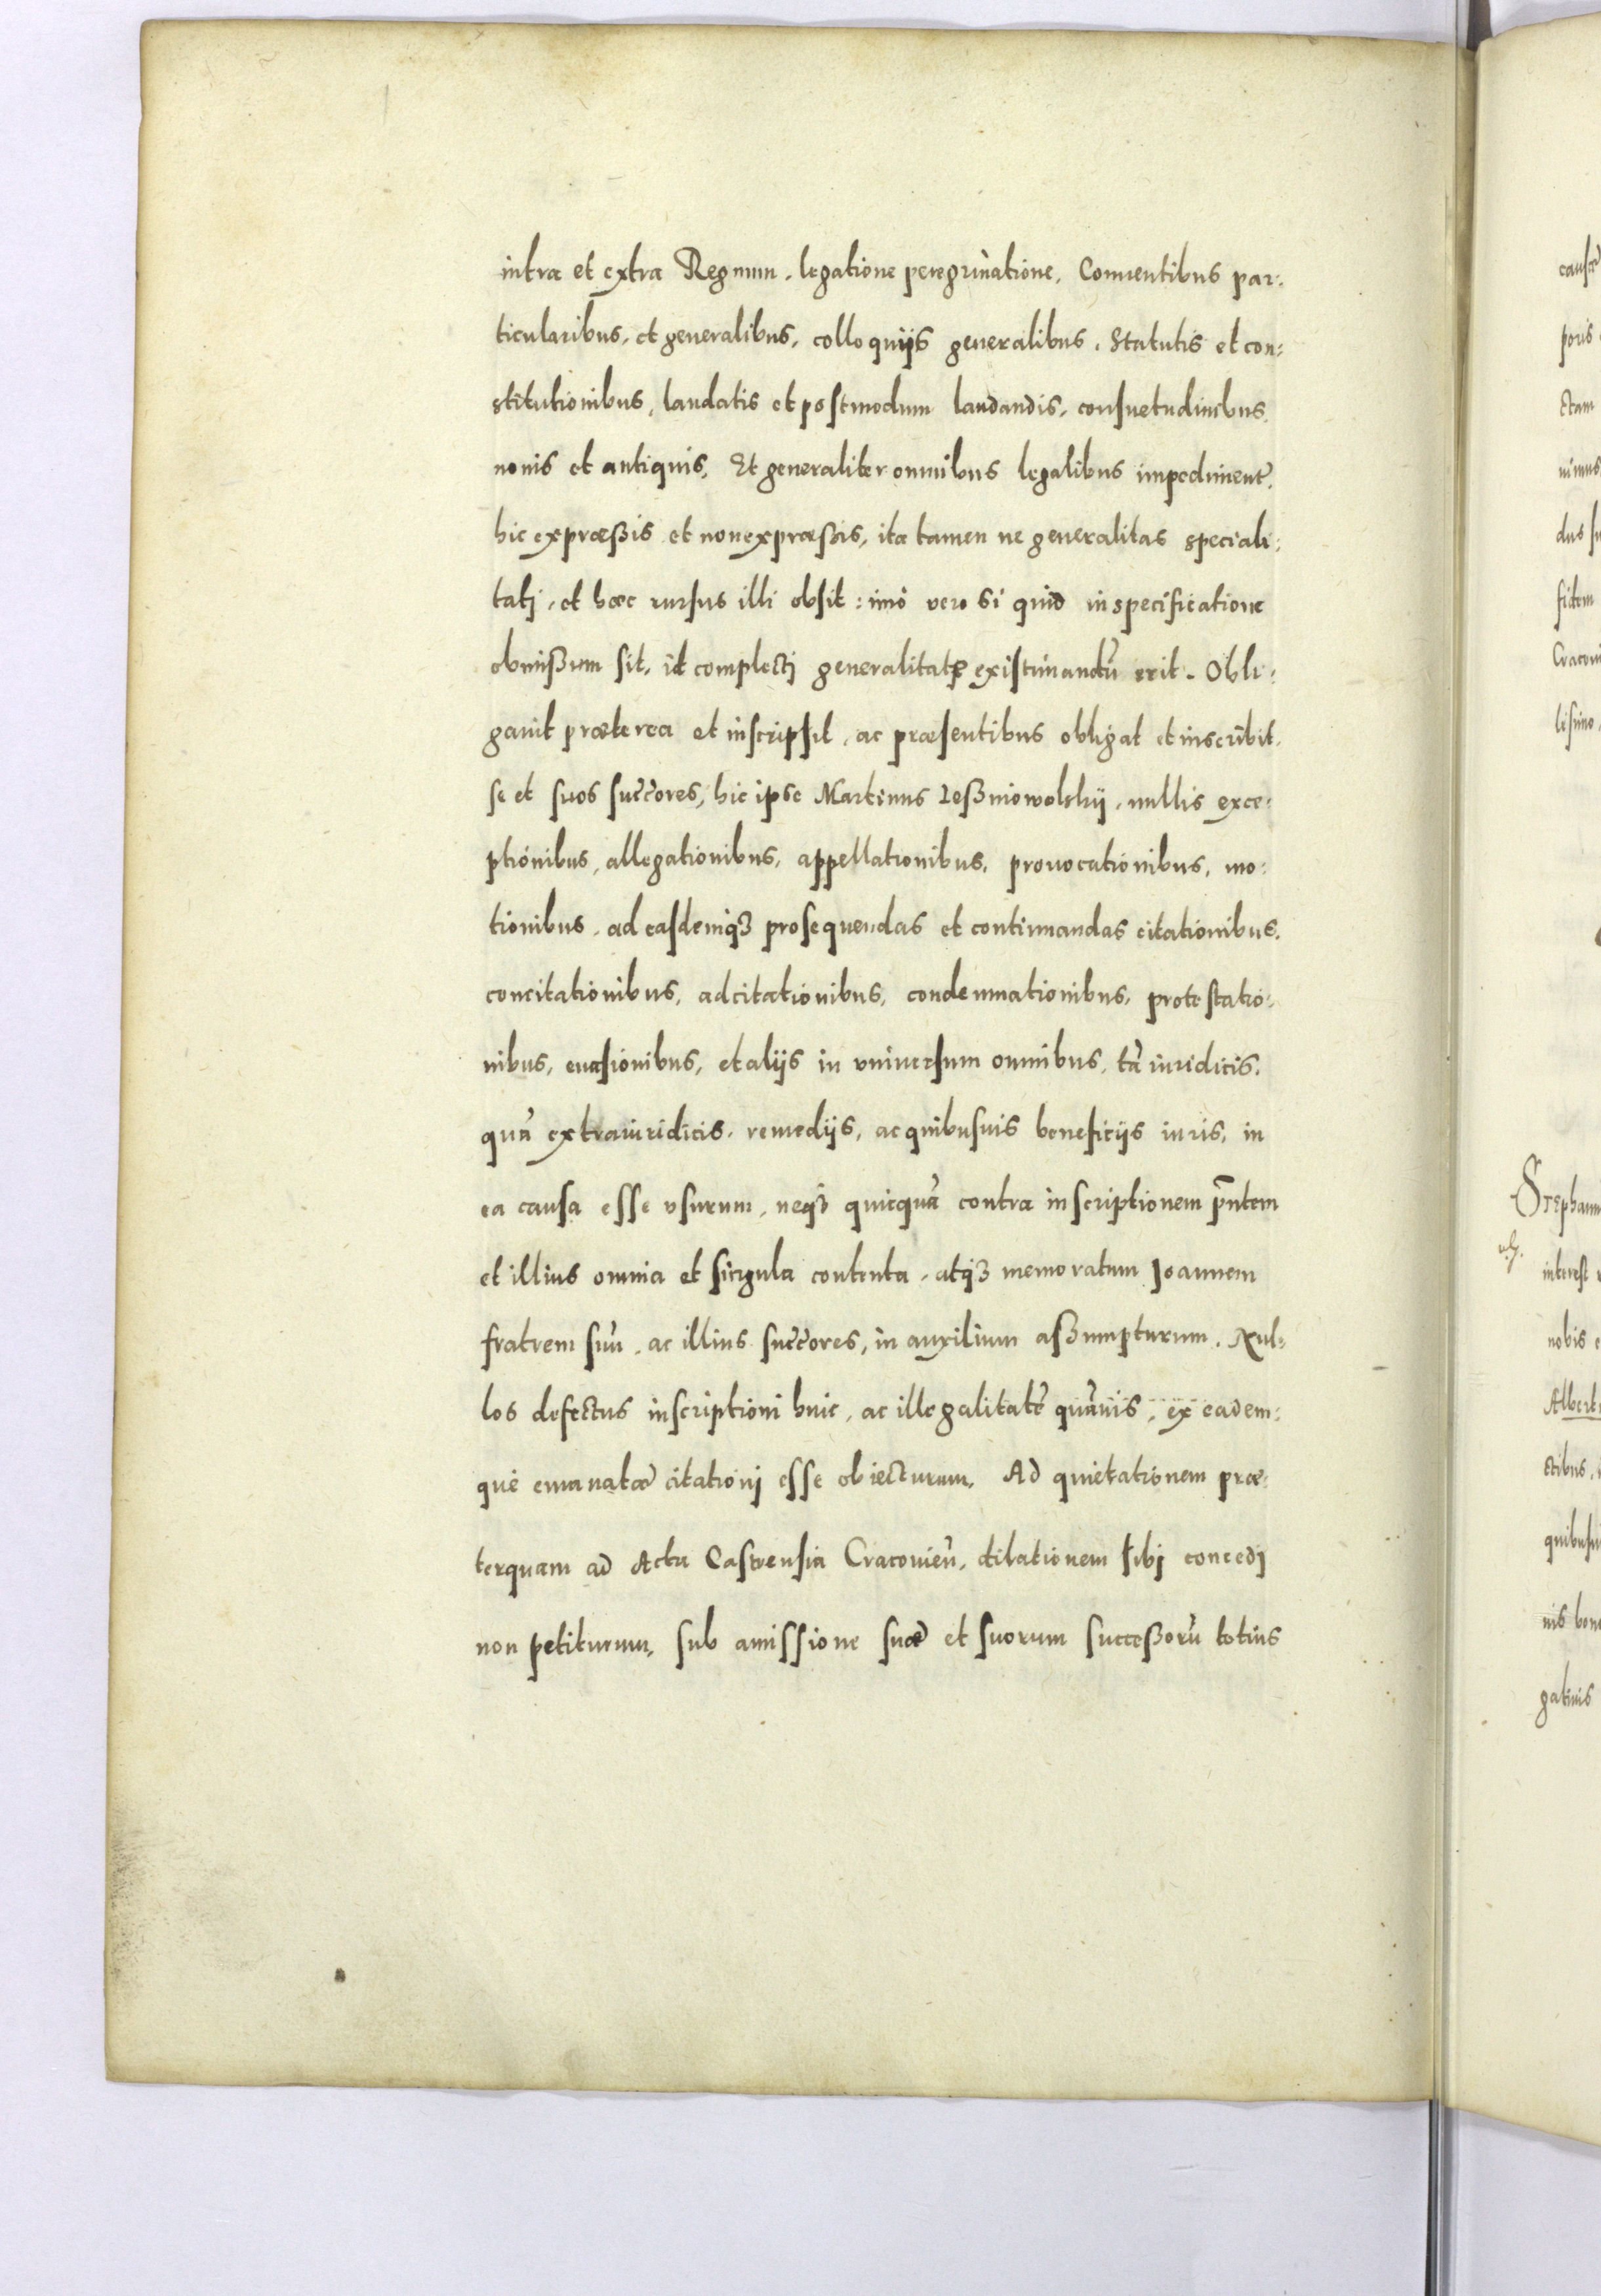 intra et extra Regnum, legatione peregrinatione, Conuentibus par:
ticularibus, et generalibus, colloquijs generalibus, Statutis et con:
stitutionibus, laudatis et postmodum laudandis, consuetudinibus,
nouis et antiquis, Et generaliter omnibus legalibus impediment̃,
hic expræßis et non expræßis, ita tamen ne generalitas speciali:
tatj, et hæc rursus illi obsit: imò vero si quid in specificatione
obmißum sit, id complectj generalitatẽ existimandũ erit. Obli:
gauit præterea et inscripsit, ac præsentibus obligat et inscribit,
se et suos succ̃ores, hic ipse Martinus Leßniowolskij, nullis exce:
ptionibus, allegationibus, appellationibus, prouocationibus, mo:
tionibus, ad easdemqꝫ prosequendas et continuandas citationibus,
concitationibus, adcitationibus, condemnationibus, protestatio:
nibus, euasionibus, et alijs in vniuersum omnibus, tã iuridicis,
quã extraiuridicis, remedijs, ac quibusuis beneficijs iuris, in
ea causa esse vsurum, neqꝫ quicquã contra inscriptionem p̃ntem
et illius omnia et singula contenta, atqꝫ memoratum Joannem
fratrem suũ, ac illius succ̃ores, in auxilium aßumpturum. Nul:
los defectus inscriptioni huic, ac illegalitatẽ quãuis, ex eadem:
què emanatæ citationj esse obiecturum. Ad quietationem præ:
terquam ad Acta Castrensia Cracouieñ, dilationem sibj concedj
non petiturum, sub amissione suæ et suorum succeßorũ totius
causæ
poris
ctam
nimus
dus
fidem
lisimo
Stephanu
interest
nobis
Albert
ctibus
quibusui
nis bono
gatiuis